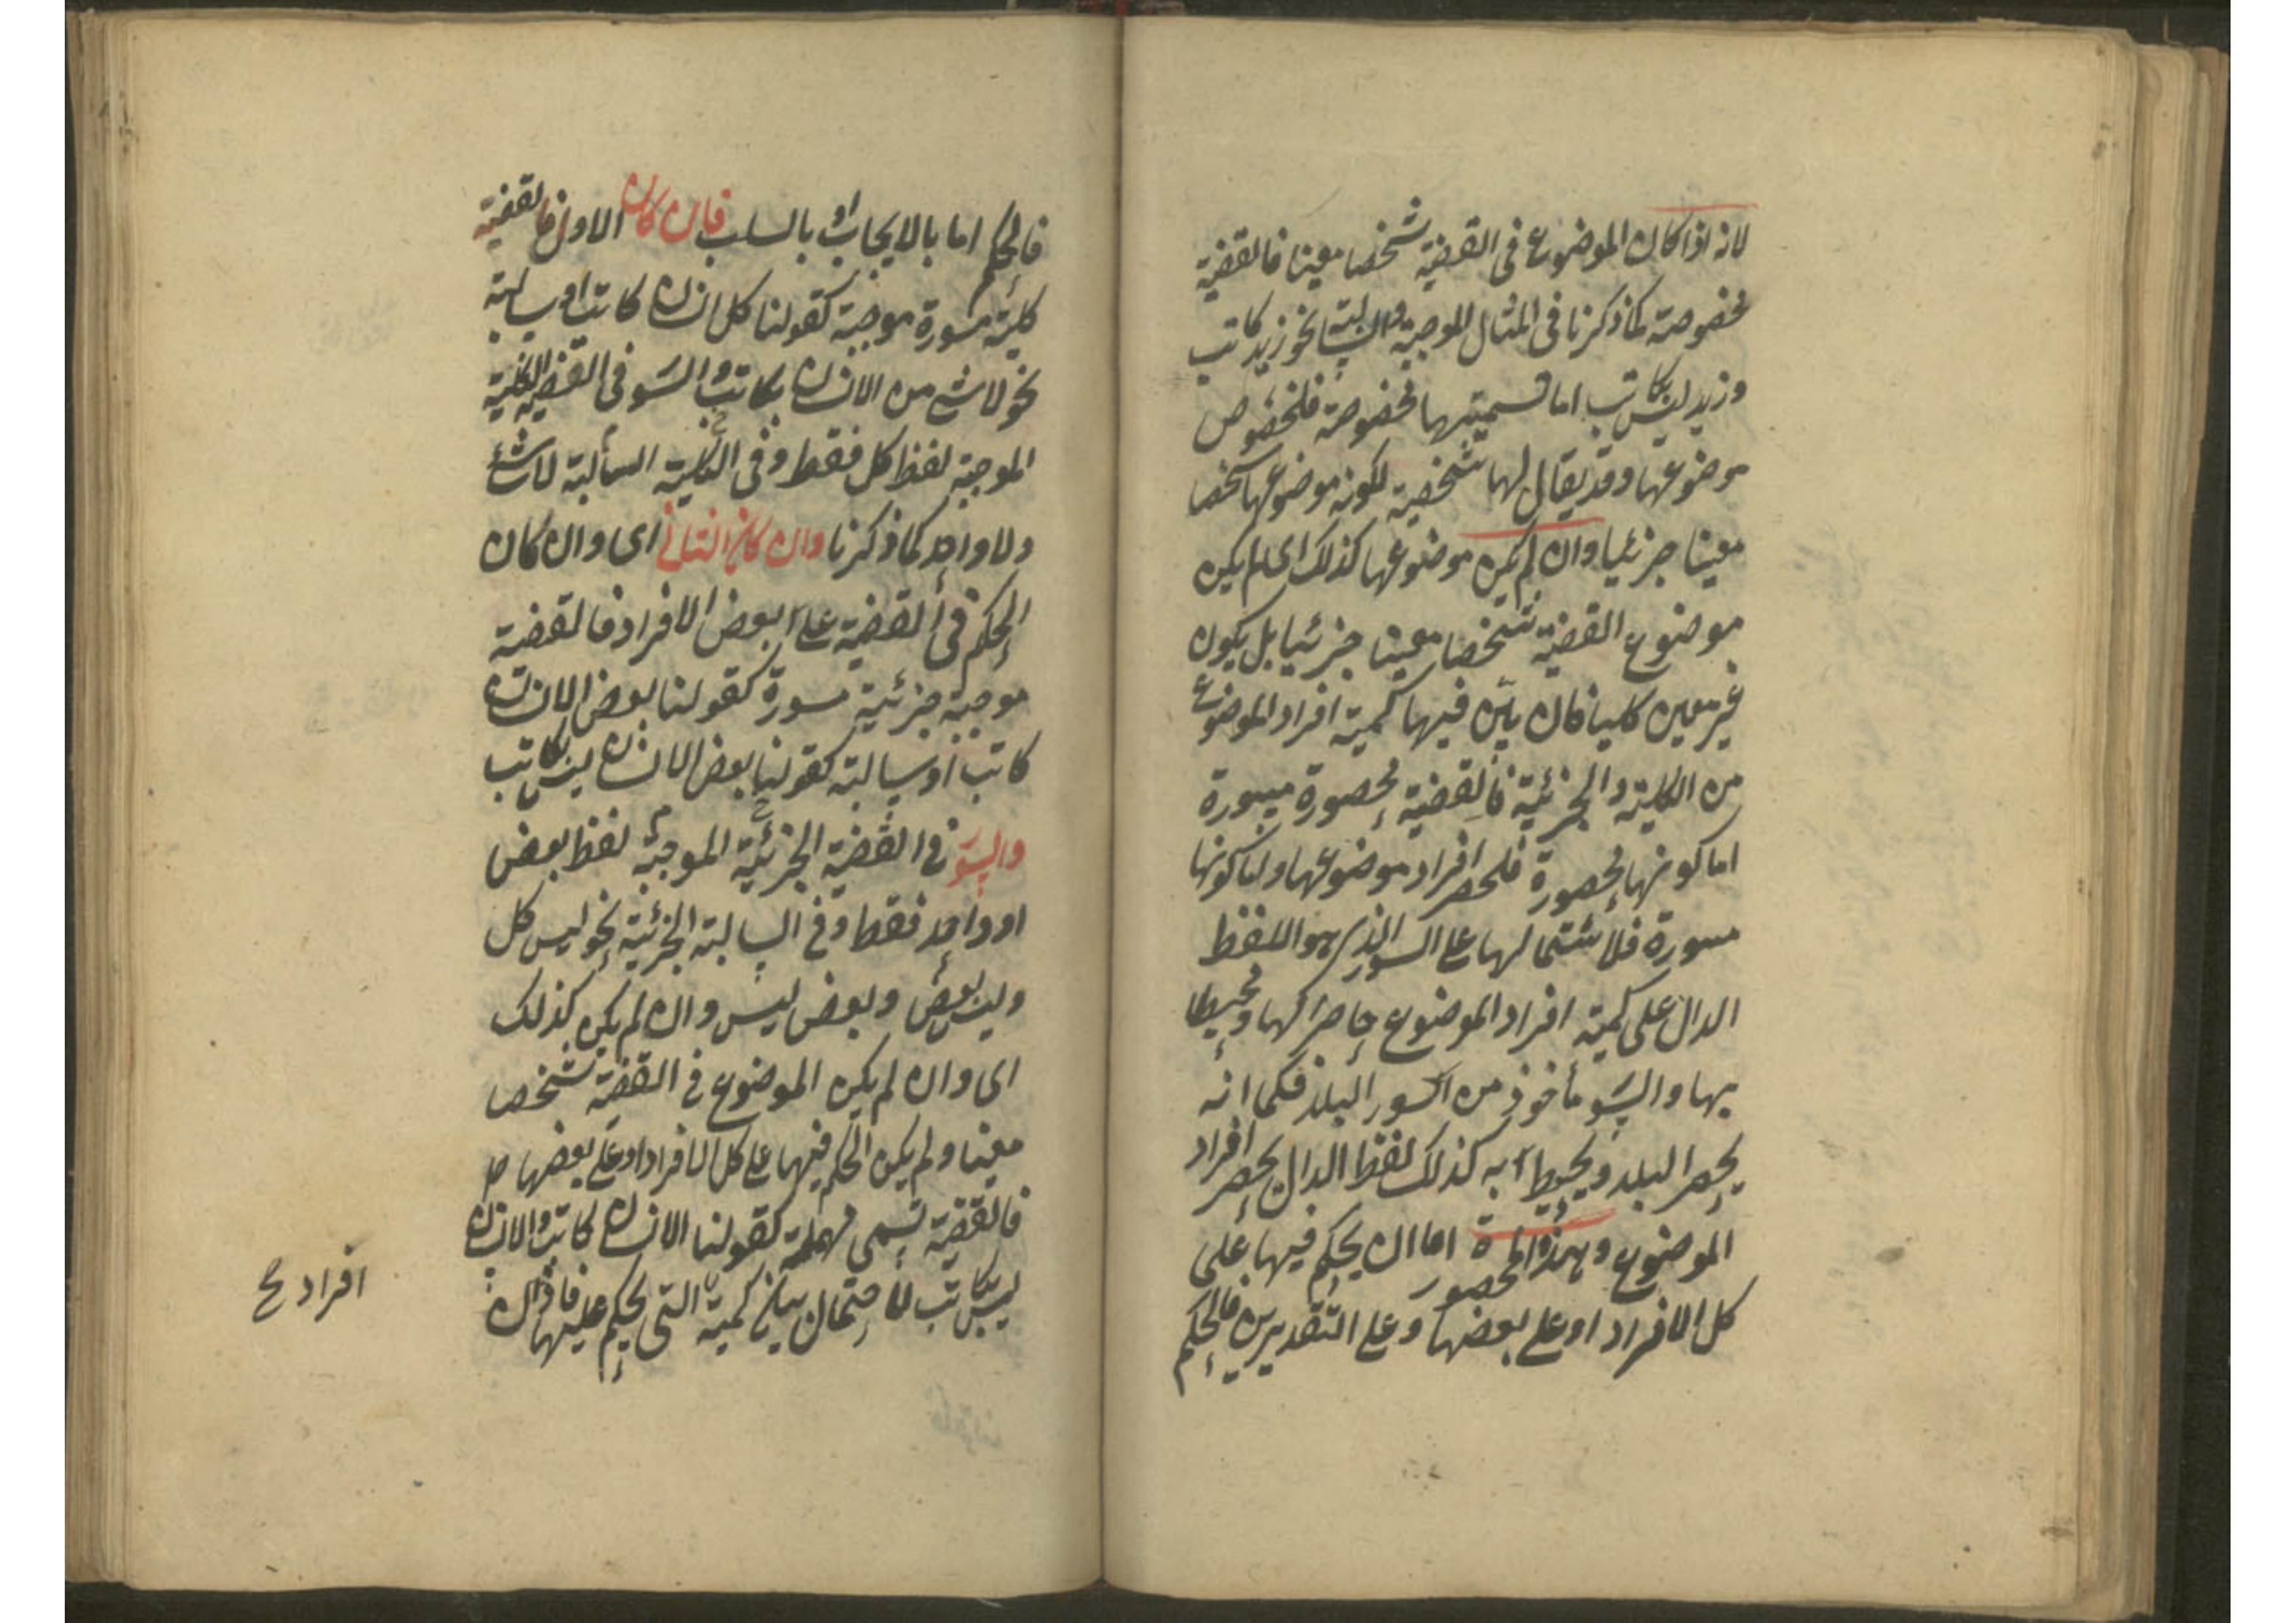 لانه اذا كان الموضوع فى القضية شخصا معينا فالقضية
مخصوصة كما ذكرنا فى المثال للموجبة والسالبة نحو زيد كاتب
وزيد ليس بكاتب اما تسميتها مخصوصة فلخصوص
موضوعها وقد يقال لها شخصية لكونه موضوعها شخصا
معينا جزئيا وان لم يكن موضوعها كذلك اى لم يكن
موضوع القضية شخصا معينا جزئيا بل يكون
غير معين كليا فان بين فيها كمية افراد الموضوع
من الكلية والجزئية فالقضية محصورة مسورة
اما كونها محصورة فلحصر افراد موضوعها واما كونها
مسورة فلاشتمالها على السور الذى هو اللفظ
الدال على كمية افراد الموضوع حاصرا لها ومحيطا
بها والسور مأخوذ من السور البلد فكما انه
يحصر البلد ويحيط به كذلك لفظ الدال يحصر افراد
الموضوع وهذه المحصورة اما ان يحكم فيها على
كل الافراد او على بعضها وعلى التقديرين فالحكم
فالحكم اما بالايجاب او بالسلب فان كان الاول فالقضية
كلية مسورة موجبة كقولنا كل انسان كاتب او سالبة
نحو لا شئ من الانسان بكاتب والسور فى القضية الكلية
الموجبة لفظ كل فقط وفى الكلية السالبة لا شئ
ولا واحد كما ذكرنا وان كان الثانى اى وان كان
الحكم فى القضية على بعض الافراد فالقضية
موجبة جزئية مسورة كقولنا بعض الانسان
كاتب او سالبة كقولنا بعض الانسان ليس بكاتب
والسور فى القضية الجزئية الموجبة لفظ بعض
او واحد فقط وفى السالبة الجزئية نحو ليس كل
وليس بعض وبعض ليس وان لم يكن كذلك
اى وان لم يكن الموضوع فى القضية شخصا
معينا ولم يكن الحكم فيها على كل الافراد او على بعضها
فالقضية تسمى مهملة كقولنا الانسان كاتب والانسان
ليس بكاتب لاحتمال بيان كمية التى يحكم عليها فان
افراد صح